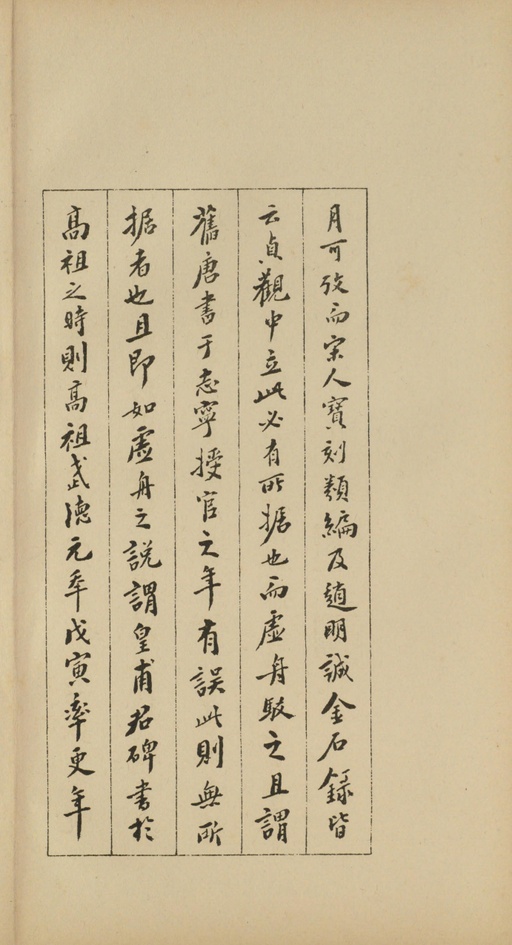 月可攷而宋人寳刻類編及趙明誠金石録皆
云貞觀中立此必有所据也而虚舟駁之且謂
舊唐書于志寧授官之年有誤此則無所
据者也且即如虚舟之説謂皇甫君碑書於
高祖之時則高祖武德元年戊寅率更年